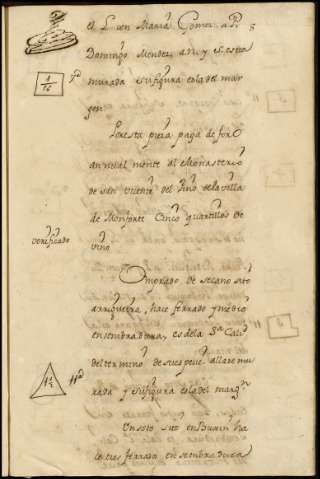 el L. en Maria Gomez a P.
Domingo Mendez a N. y S. esta
murada su figura es la del mar
gen
Por esta pieza paga de foro
annual mente al Monasterio
de san Vicente del Pino de la villa
de Monforte Cinco quartillos de
verificado
vino
Otro prado de secano sito
arriqueira, hace ferrado y medio
en sembradura, es de la 3ª Calid
del termino de su especie, allase mu
rada y su figura es la del margn
1½
En osto sito en Buxin ha
ce tres ferrados en sembradura